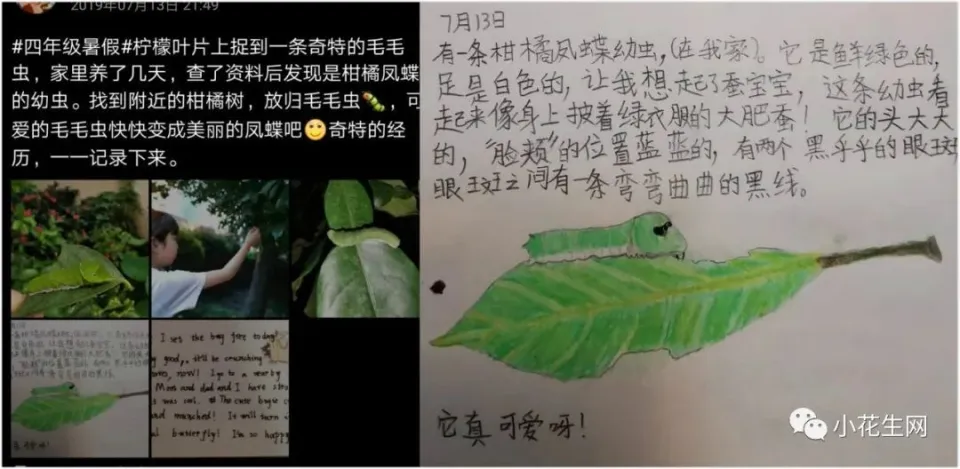 2019年07月13日 21:49
#四年级暑假#柠檬叶片上捉到一条奇特的毛毛
虫，家里养了几天，查了资料后发现是柑橘凤蝶
的幼虫。找到附近的柑橘树，放归毛毛虫🐛，可
爱的毛毛虫快快变成美丽的凤蝶吧😊奇特的经
历，一一记录下来。
I set the bug free today!
good, it'll be
now! I go to a nearby
Mom and dad and I have
was cool. The cute bug
and munched! It will turn
butterfly! I'm so happy
7月13日
有一条柑橘凤蝶幼虫，(在我家)。它是鲜绿色的，
足是白色的，让我想起了蚕宝宝，这条幼虫看
起来像身上披着绿衣服的大肥蚕！它的头大大
的，"脸颊"的位置蓝蓝的，有两个黑乎乎的眼斑
眼斑之间有一条弯弯曲曲的黑线。
它真可爱呀！
小花生网